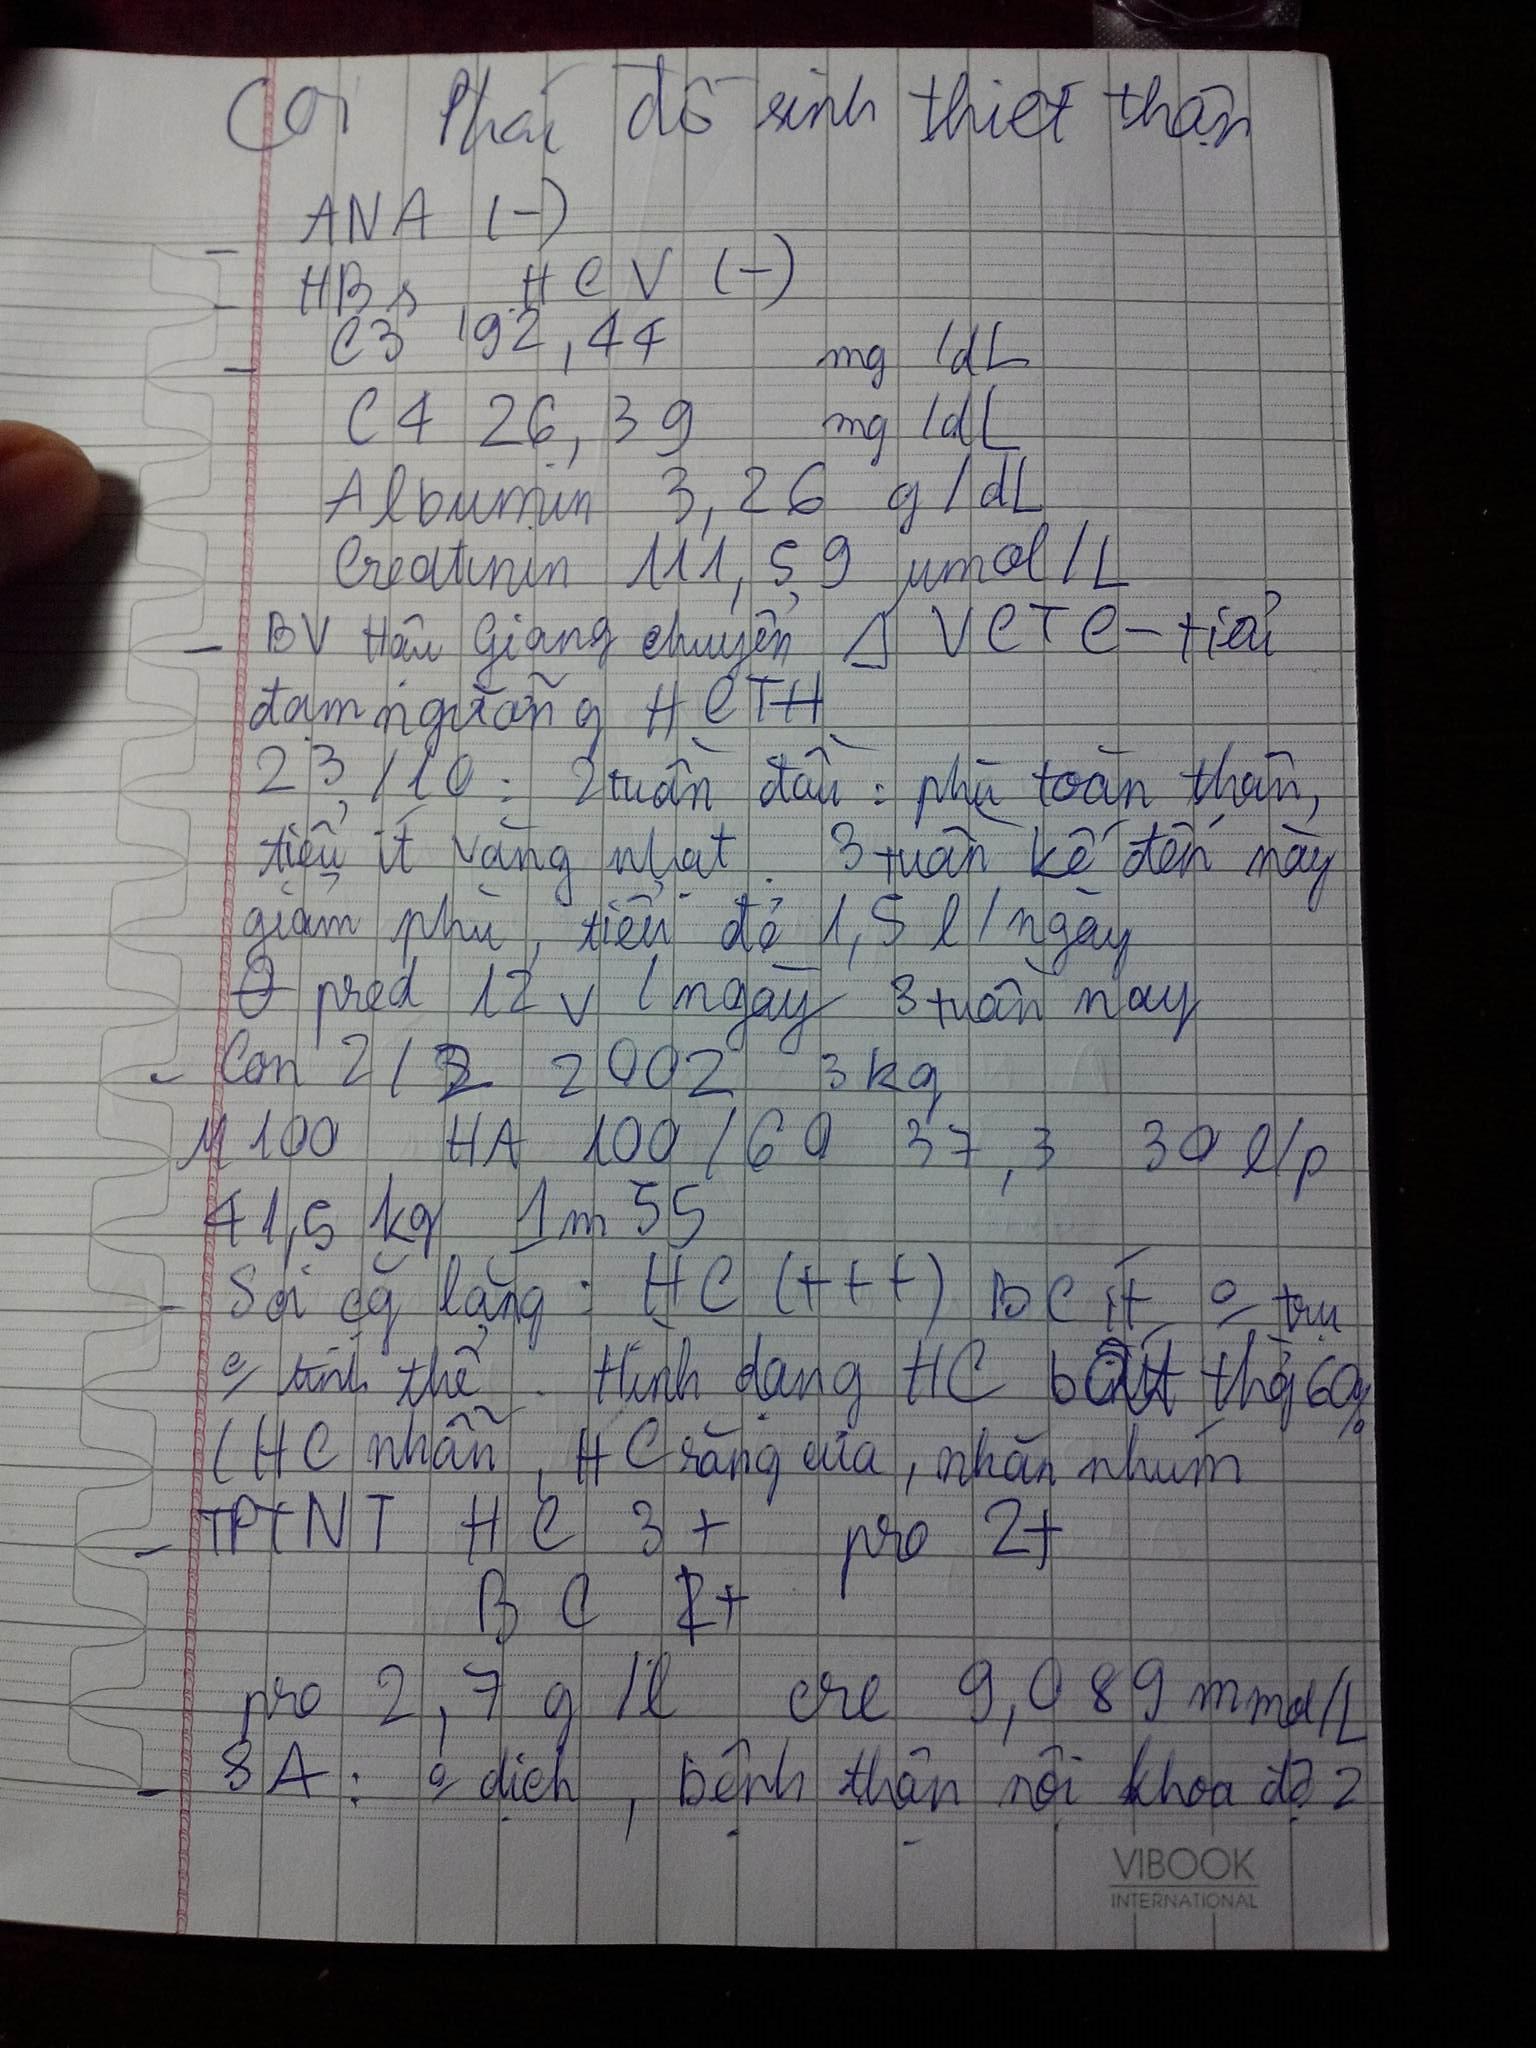 Coi Phác đồ sinh thiết thận
- ANA (-)
- HBs HCV (-)
- C3 192,44 mg/dL
C4 26,39 mg/dL
Albumin 3,26 g/dL
Creatinin 111,59 µmol/L
- BV Hậu Giang chuyển Δ VCTC - tiểu
đạm ngưỡng HCTH
23/10: 2 tuần đầu: phù toàn thân,
tiểu ít vàng nhạt. 3 tuần kế đến này
giảm phù, tiểu đỏ 1,5 l/ngày
pred 12 v/ngày 3 tuần nay
- Con 2/2 2002 3kg
M 100 HA 100/60 37,3 30 l/p
41,5 kg 1m55
- Soi cặn lắng: HC (+++) BC ít o trụ
o tinh thể. Hình dạng HC bất thg 60%
(HC nhẫn, HC răng cưa, nhăn nhúm
- TPTNT HC 3+ pro 2+
BC 2+
pro 2,7 g/l cre 9,089 mmol/L
- SA: o dịch, bệnh thận nội khoa độ 2
VIBOOK
INTERNATIONAL